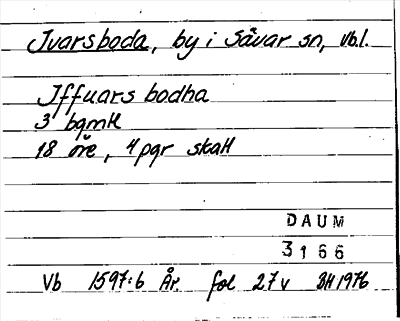 Ivarsboda, by i Sävar sn, Vb.l.
Jffuars bodha
3 bgmtl
18 öre, 4 pgr skatt
DAUM
3166
Vb 1597:6 År. fol 27 v BH 1976